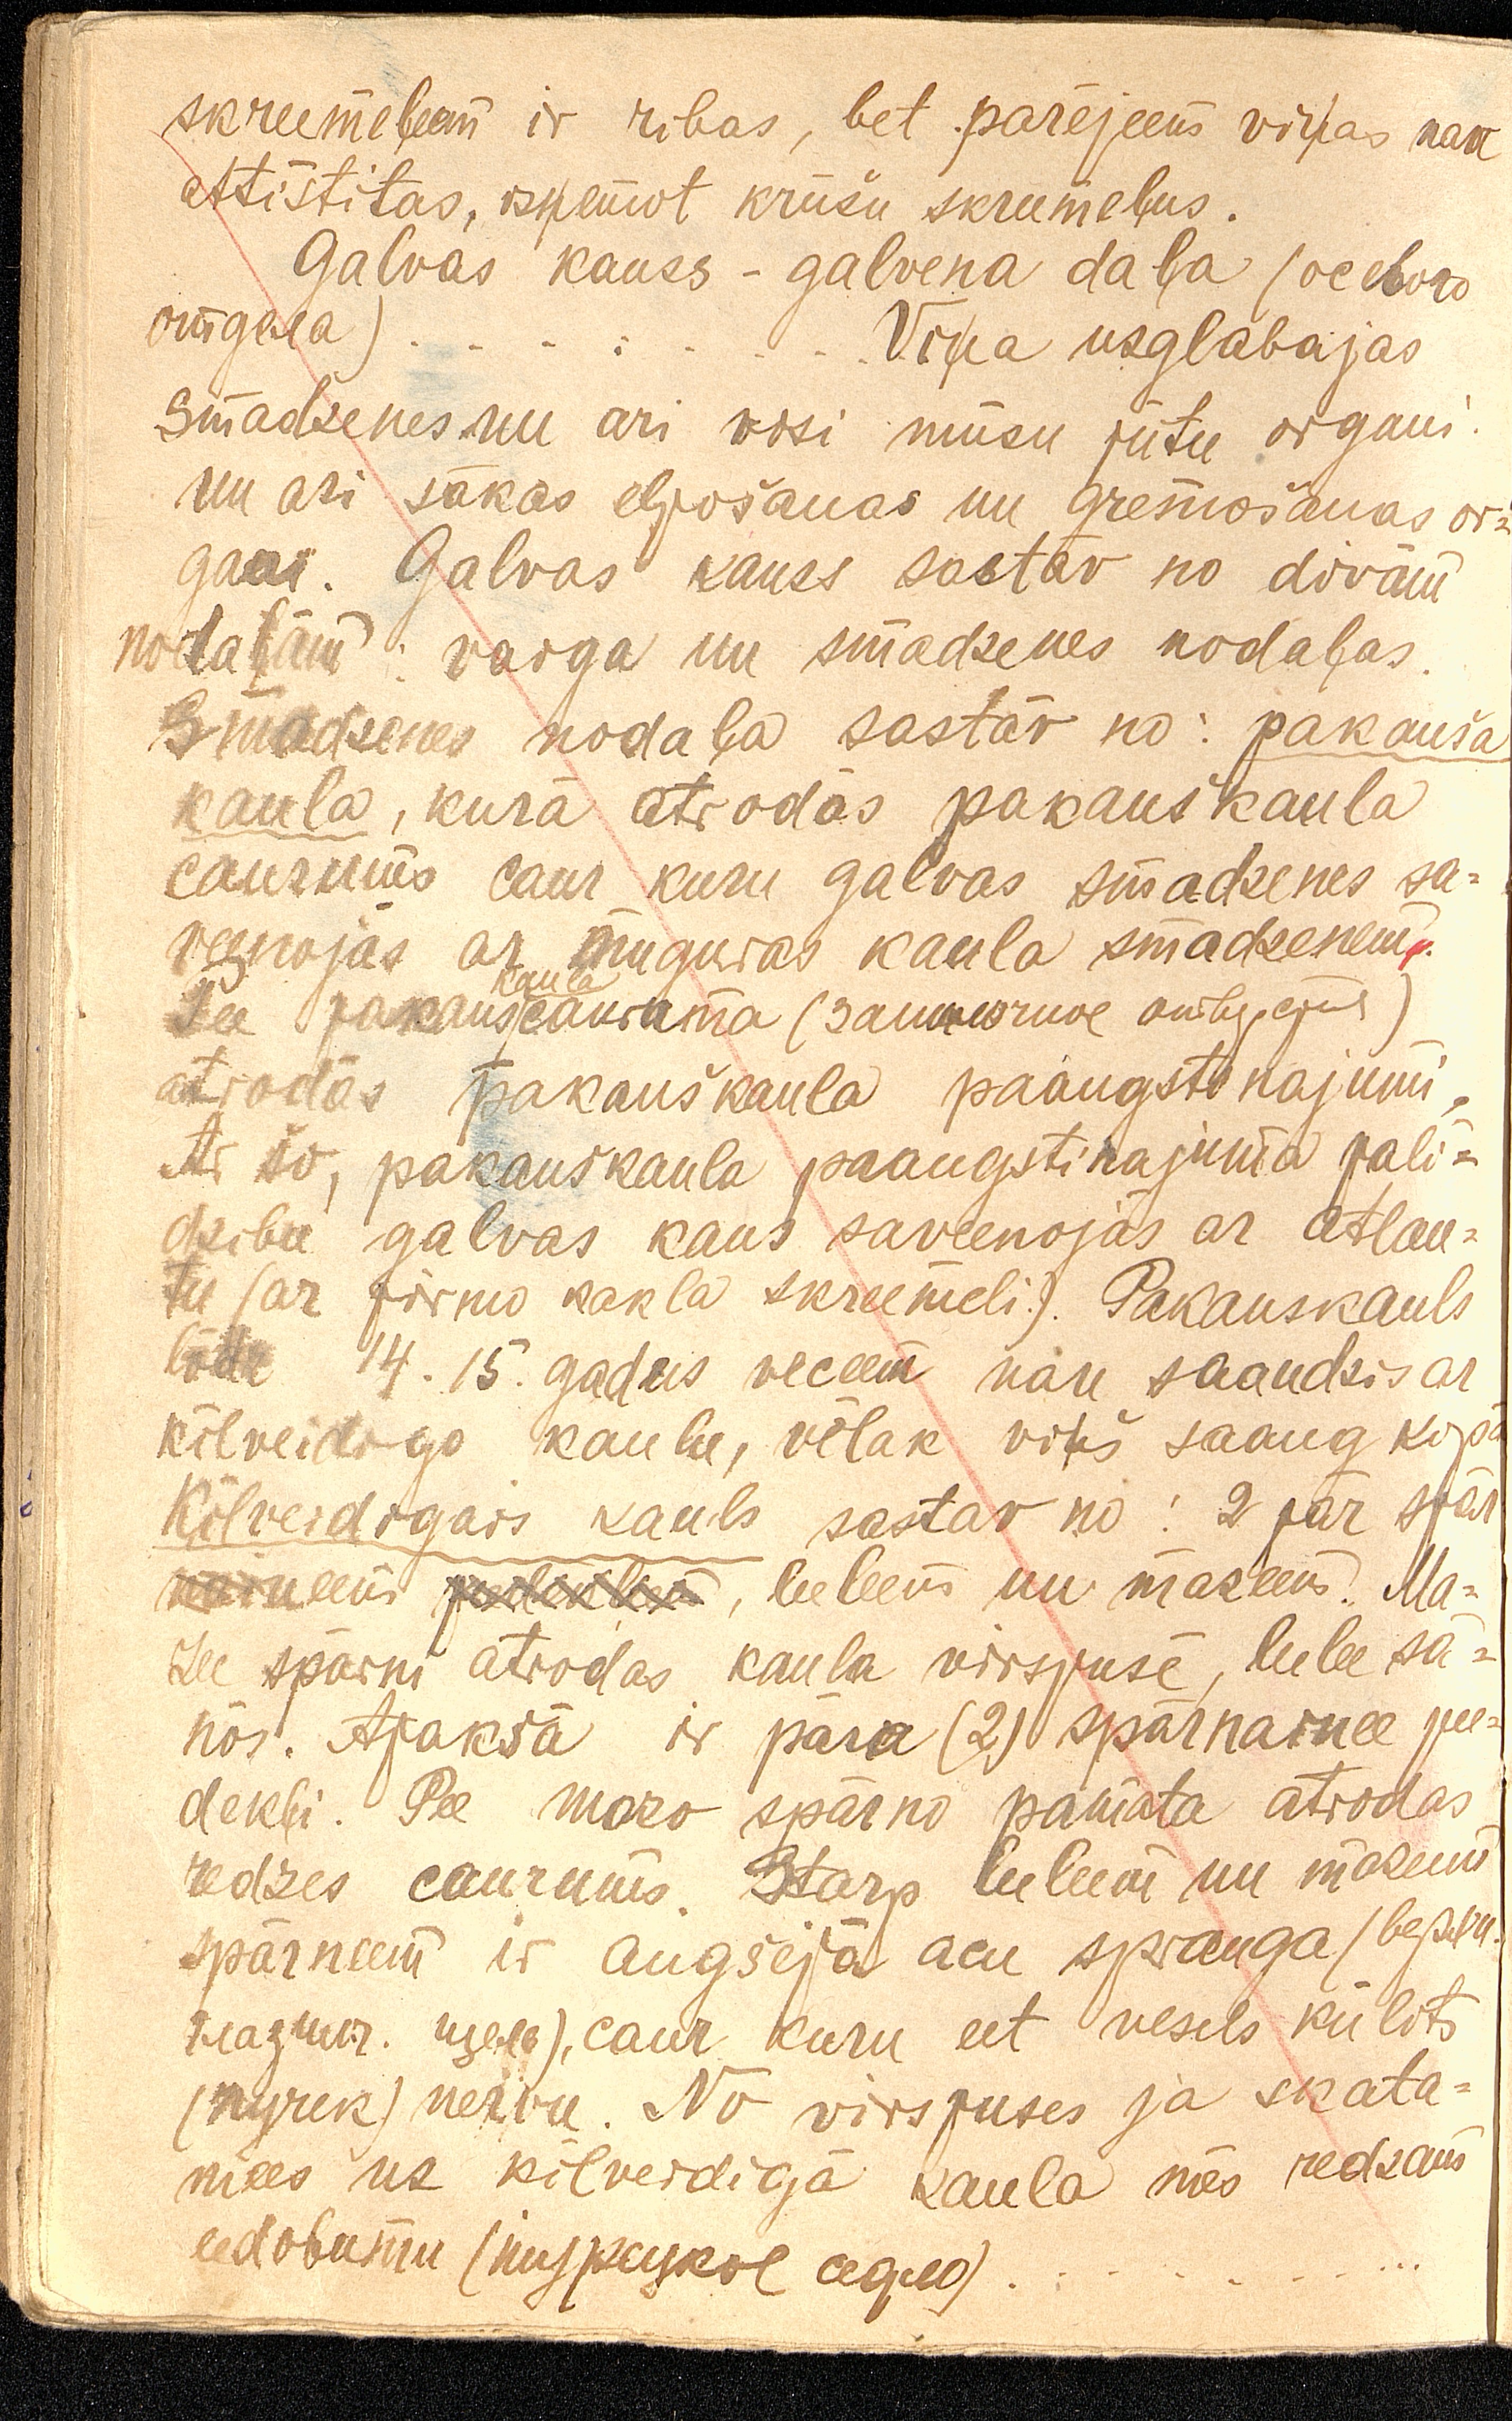 skreemeļeem ir ribas, bet parejeem viņas nav
attīstitas, isņemot krūšu skreemeļus.
Galvas kauss - galvena daļa (особого
отдела) . . . . . . . . Viņa usglabajas
smadzenes un ari visi mūsu jūtu organi.
un ari sākas elpošanas un gremošanas or=
gani. Galvas kauss sastāv no divām
nodaļām: vaiga un smadzenes nodaļas.
Smadzenes nodaļa sastāv no: pakauša
kaula, kurā atrodās pakauškaula
caurums caur kuru galvas smadzenes sa=
veenojās ar muguras kaula smadzenem.
Pee pakauš kaula cauruma (затылочное отверстие)
atrodās pakauškaula paaugstinajumi,
Ar šo, pakauškaula paaugstinajuma pali=
dzibu galvas kaus saveenojās ar atlan=
tu (ar pirmo kakla skreemeli). Pakauskauls
lidz 14. 15. gadus veceem nav saaudzis ar
kīlveidigo kaulu, vēlak viņš saaug kopā
Kīlveidigais kauls sastav no: 2 pār spār
naineem, leeleem un mazeem. Ma=
zee spārni atrodas kaula virspusē, leelee sā=
nōs. Apakšā ir pāra (2) spārnainee pee=
dekļi. Pee mazo spārno pamata atrodas
redzes caurums. Starp leeleem un mazeem
spārneem ir augšejā acu sprauga (верхн.
глазнич. щель), caur kuru eet vesels kūlits
(пучек) nervu. No virspuses ja skata=
mees uz kīlveidigā kaula mēs redzam
eedobumu (турецкое седло) . . . . . . . . . .